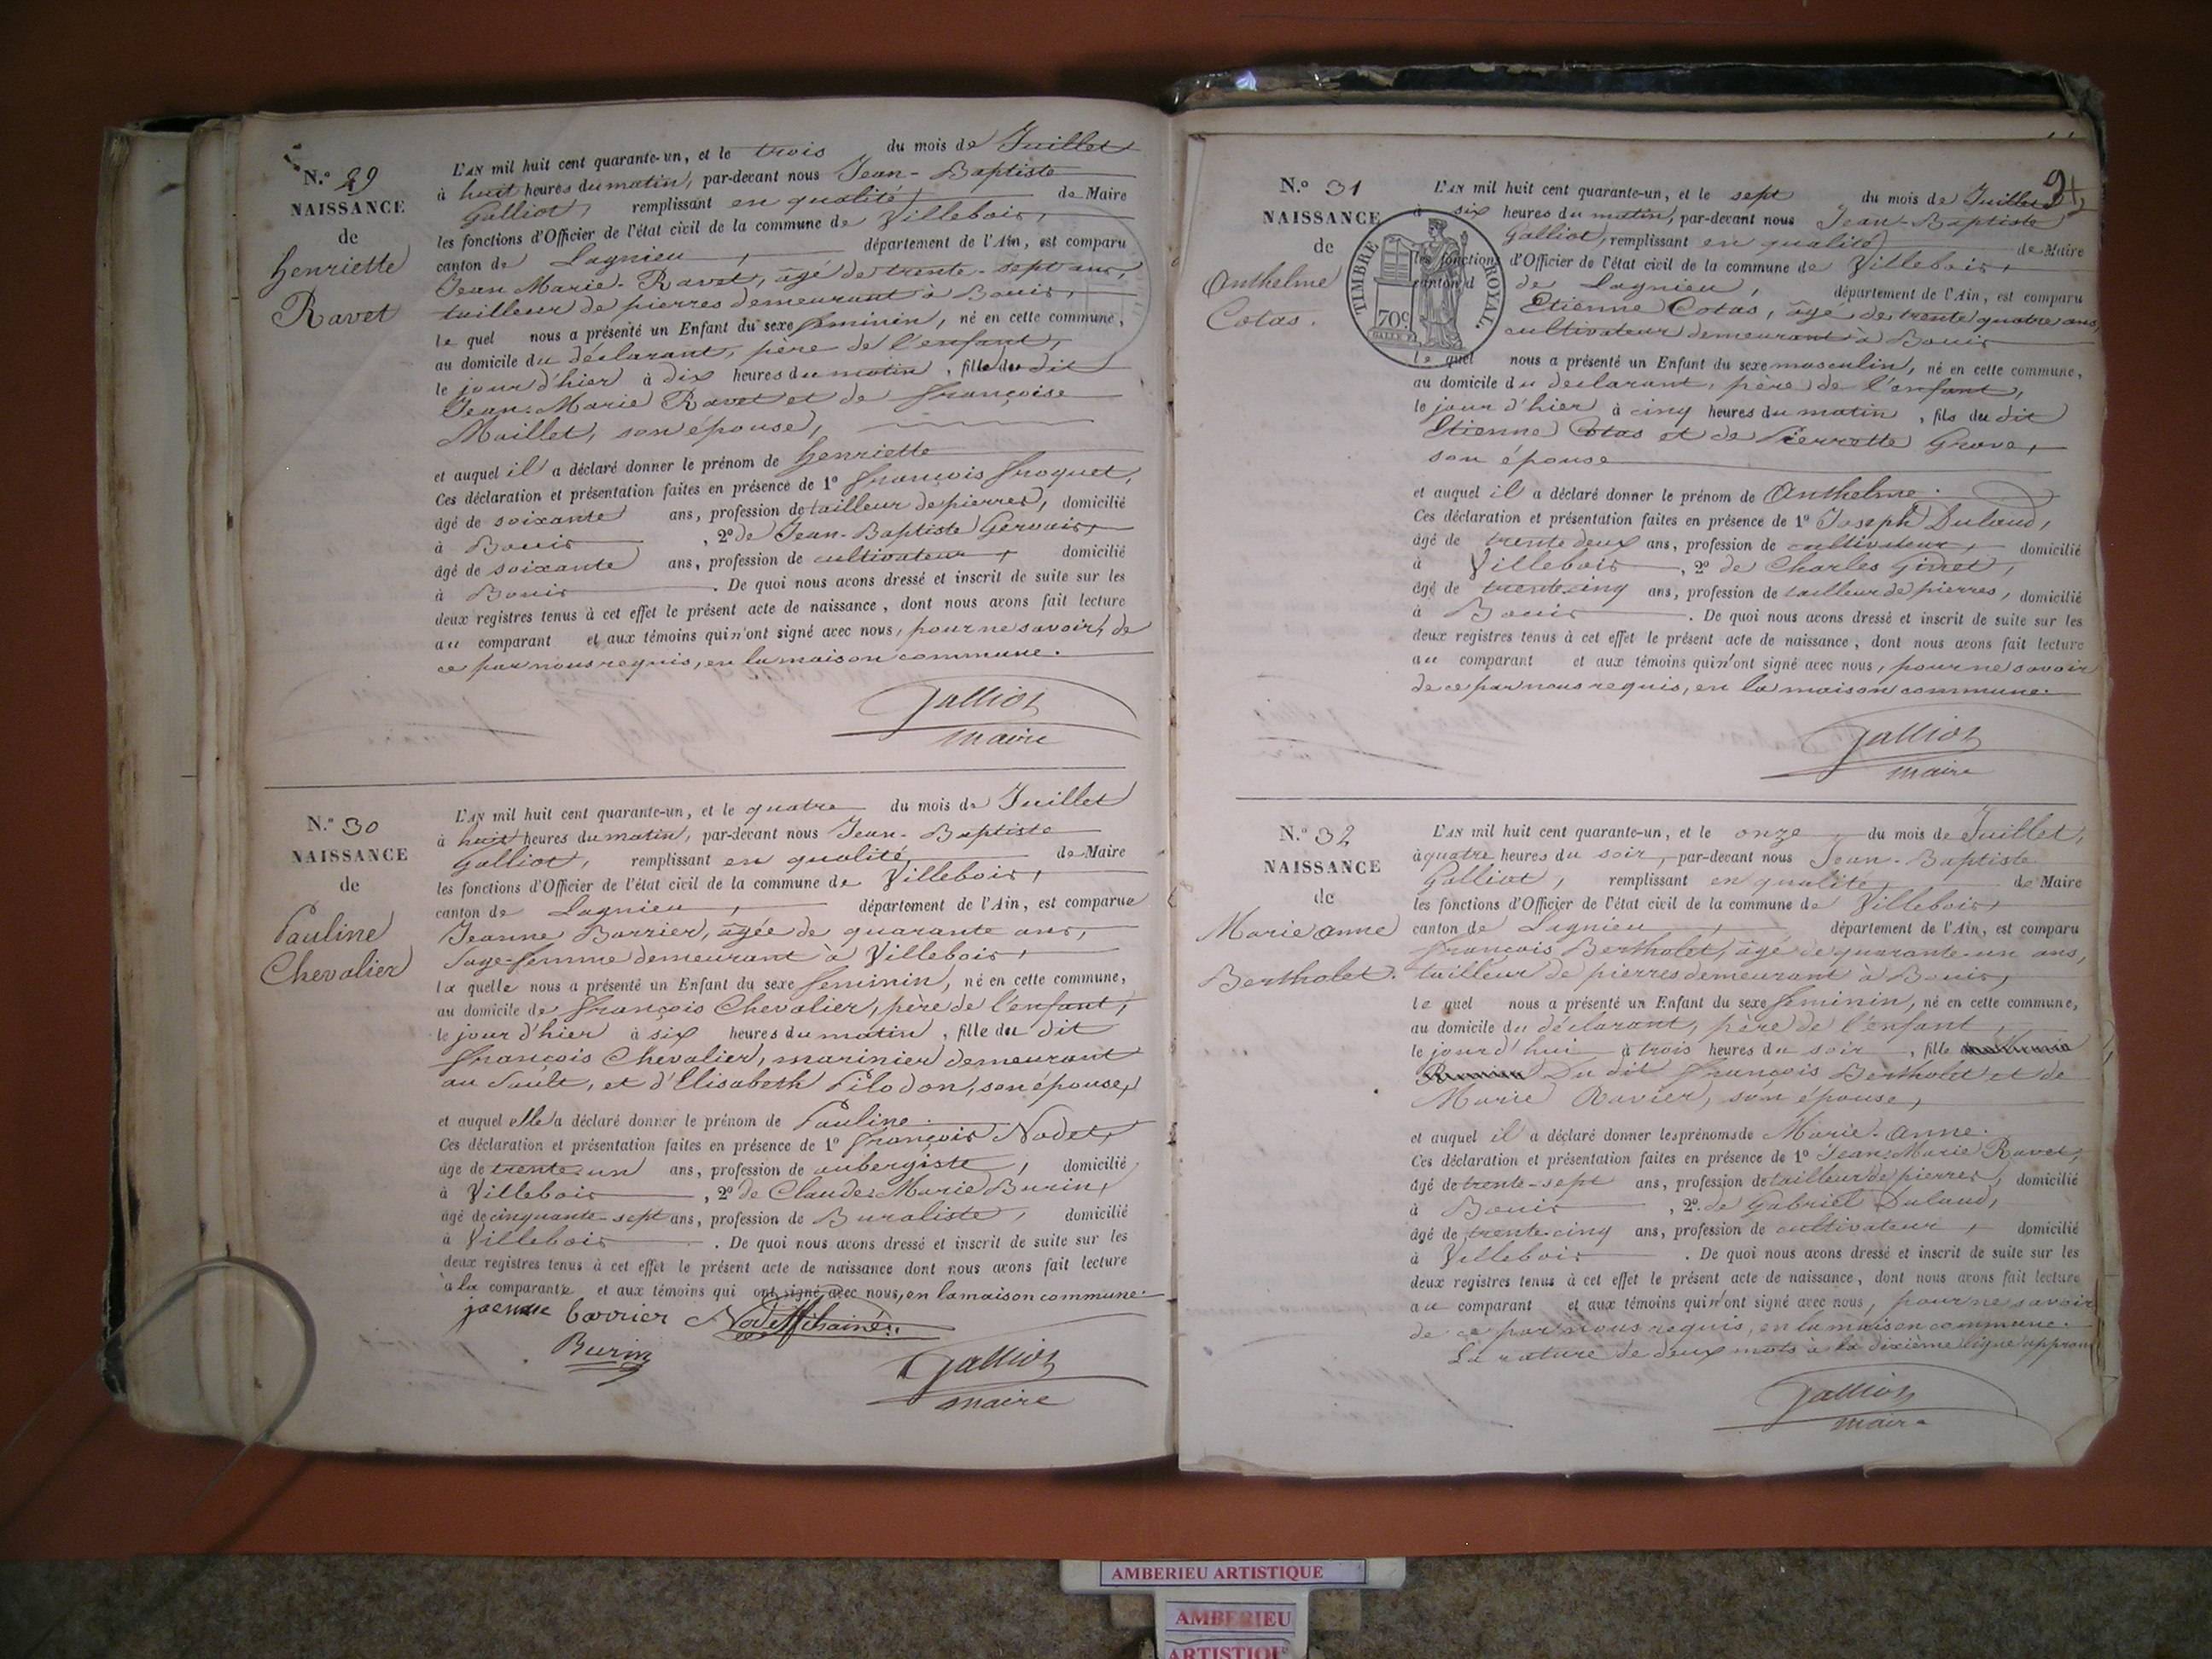 N.o 29
NAISSANCE
de
henriette
Ravet
L'AN mil huit cent quarante-un, et le trois du mois de Juillet
à huit heures du matin, par-devant nous Jean-Baptiste
Galliot, remplissant en qualité de Maire
les fonctions d'Officier de l'état civil de la commune de Villebois,
canton de Lagnieu, département de l'Ain, est comparu
Jean Marie Ravet, âgé de trente-sept ans,
tailleur de pierres demeurant à Bouis,
le quel nous a présenté un Enfant du sexe feminin, né en cette commune,
au domicile du déclarant, père de l'enfant,
le jour d'hier à dix heures du matin, fille du dit
Jean-Marie Ravet et de françoise
Maillet, son épouse,
et auquel il a déclaré donner le prénom de henriette
Ces déclaration et présentation faites en présence de 1o françois froquet,
âgé de soixante ans, profession de tailleur de pierres, domicilié
à Bouis, 2o de Jean-Baptiste Gervais,
âgé de soixante ans, profession de cultivateur, domicilié
à Bouis. De quoi nous avons dressé et inscrit de suite sur les
deux registres tenus à cet effet le présent acte de naissance, dont nous avons fait lecture
au comparant et aux témoins qui n'ont signé avec nous, pour ne savoir, de
ce par nous requis, en la maison commune.
Galliot
maire
N.o 30
NAISSANCE
de
Pauline
Chevalier
L'AN mil huit cent quarante-un, et le quatre du mois de Juillet
à huit heures du matin, par-devant nous Jean-Baptiste
Galliot, remplissant en qualité de Maire
les fonctions d'Officier de l'état civil de la commune de Villebois,
canton de Lagnieu, département de l'Ain, est comparue
Jeanne Barrier, âgée de quarante ans,
Sage-femme demeurant à Villebois,
la quelle nous a présenté un Enfant du sexe feminin, né en cette commune,
au domicile de françois Chevalier, père de l'enfant,
le jour d'hier à six heures du matin, fille du dit
françois Chevalier, marinier demeurant
au Sault, et d'Elisabeth Pilodon, son épouse,
et auquel elle a déclaré donner le prénom de Pauline.
Ces déclaration et présentation faites en présence de 1o françois Nodet,
âgé de trente-un ans, profession de aubergiste, domicilié
à Villebois, 2o de Claude-Marie Burin,
âgé de cinquante-sept ans, profession de Buraliste, domicilié
à Villebois. De quoi nous avons dressé et inscrit de suite sur les
deux registres tenus à cet effet le présent acte de naissance dont nous avons fait lecture
à la comparante et aux témoins qui ont signé avec nous, en la maison commune.
Burin
Galliot
maire
N.o 31
NAISSANCE
de
Anthelme
Cotas.
TIMBRE ROYAL.
70c
L'AN mil huit cent quarante-un, et le sept du mois de Juillet
à six heures du matin, par-devant nous Jean-Baptiste
Galliot, remplissant en qualité de Maire
les fonctions d'Officier de l'état civil de la commune de Villebois,
canton d de Lagnieu, département de l'Ain, est comparu
Etienne Cotas, âgé de trente quatre ans,
cultivateur demeurant à Bouis
le quel nous a présenté un Enfant du sexe masculin, né en cette commune,
au domicile du declarant, père de l'enfant,
le jour d'hier à cinq heures du matin, fils du dit
Etienne Cotas et de Pierrette Grave,
son épouse
et auquel il a déclaré donner le prénom de Anthelme.
Ces déclaration et présentation faites en présence de 1o Joseph Duland,
âgé de trente deux ans, profession de cultivateur, domicilié
à Villebois, 2o de Charles Ginet,
âgé de trente cinq ans, profession de tailleur de pierres, domicilié
à Bouis. De quoi nous avons dressé et inscrit de suite sur les
deux registres tenus à cet effet le présent acte de naissance, dont nous avons fait lecture
au comparant et aux témoins qui n'ont signé avec nous, pour ne savoir
de ce par nous requis, en la maison commune.
Galliot
maire
N.o 32
NAISSANCE
de
Marie anne
Bertholet.
L'AN mil huit cent quarante-un, et le onze du mois de Juillet,
à quatre heures du soir, par-devant nous Jean-Baptiste
Galliot, remplissant en qualité de Maire
les fonctions d'Officier de l'état civil de la commune de Villebois,
canton de Lagnieu, département de l'Ain, est comparu
françois Bertholet, âgé de quarante-un ans,
tailleur de pierres demeurant à Bouis,
le quel nous a présenté un Enfant du sexe feminin, né en cette commune,
au domicile du déclarant, père de l'enfant,
le jourd'hui à trois heures du soir, fille
Du dit françois Bertholet et de
Marie Ravier, son épouse,
et auquel il a déclaré donner les prénoms de Marie-Anne.
Ces déclaration et présentation faites en présence de 1o Jean-Marie Ravet,
âgé de trente-sept ans, profession de tailleur de pierres, domicilié
à Bouis, 2o de Gabriel Duland,
âgé de trente-cinq ans, profession de cultivateur, domicilié
à Villebois. De quoi nous avons dressé et inscrit de suite sur les
deux registres tenus à cet effet le présent acte de naissance, dont nous avons fait lecture
au comparant et aux témoins qui n'ont signé avec nous, pour ne savoir
de ce par nous requis, en la maison commune.
La rature de deux mots à la dixième ligne
Galliot
maire
AMBERIEU ARTISTIQUE
AMBERIEU